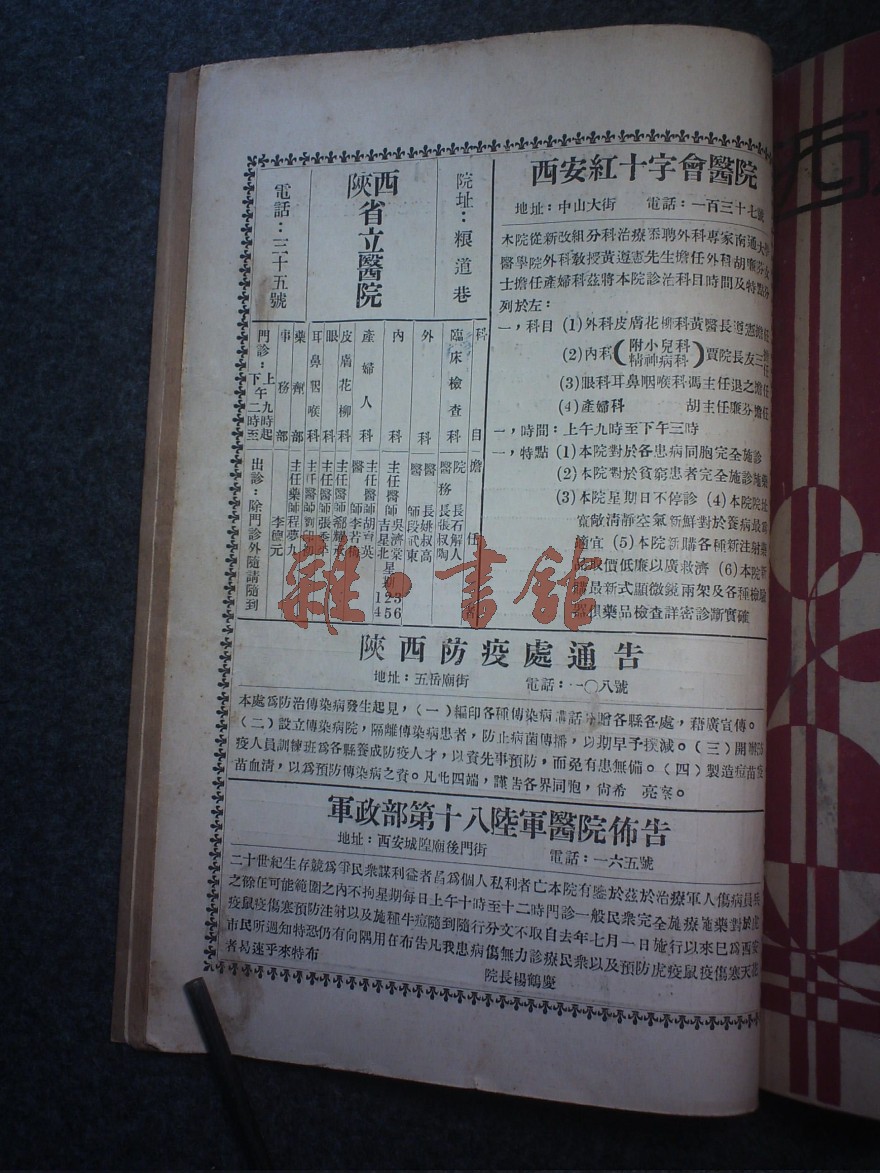 西安紅十字會醫院
地址：中山大街　電話：一百三十七號
本院從新改組分科治療添聘外科專家南通大學
醫學院外科教授黃遵憲先生擔任外科胡廉芬女
士擔任產婦科茲將本院診治科目時間及特點分
列於左：
一，科目 (1)外科皮膚花柳科黃醫長遵憲擔任
(2)內科(附小兒科精神病科)賈院長友三擔任
(3)眼科耳鼻咽喉科馮主任退之擔任
(4)產婦科　胡主任廉芬擔任
一，時間：上午九時至下午三時
一，特點 (1)本院對於各患病同胞完全施診
(2)本院對於貧窮患者完全施診施藥
(3)本院星期日不停診 (4)本院院址
寬敞清靜空氣新鮮對於養病最為
適宜 (5)本院新購各種新注射藥
品取價低廉以廣救濟 (6)本院新
購最新式顯微鏡兩架及各種檢驗
器俱藥品檢查詳密診斷實確
院址：粮道巷
陝西省立醫院
電話：三十五號
科目　擔任者
臨床檢查科　院長石解人
醫務長張叔陶
外科　醫長姚叔高
醫師段武東
內科　主任醫師吳濟棠星期123
吉星北 456
產婦人科　主任醫師胡育英
醫師李若
皮膚花柳科　主任醫師耀承
眼科　主任醫師張季
耳鼻咽喉科　主任醫師
藥劑部　主任藥師程夢九
事務部　李德元
門診：上午九時起下午二時至
出診：除門診外隨請隨到
陝西防疫處通告
地址：五岳廟街　電話：一〇八號
本處為防治傳染病發生起見，（一）編印各種傳染病講話分贈各縣各處，藉廣宣傳。
（二）設立傳染病院，隔離傳染病患者，防止病菌傳播，以期早予撲滅。（三）開辦防
疫人員訓練班為各縣養成防疫人才，以資先事預防，而免有患無備。（四）製造痘苗疫
苗血清，以為預防傳染病之資。凡此四端，謹告各界同胞，尚希　亮察。
軍政部第十八陸軍醫院佈告
地址：西安城隍廟後門街　電話：一六五號
二十世紀生存競為爭民衆謀利益者昌為個人私利者亡本院有鑒於茲於治療軍人傷病員兵
之餘在可能範圍之內不拘星期每日上午十時至十二時門診一般民衆完全施療施藥對於虎
疫鼠疫傷寒預防注射以及施種牛痘隨到隨行分文不取自去年七月一日施行以來已為西安
市民所週知特恐仍有向隅用在布告凡我患病傷無力診療民衆以及預防虎疫鼠疫傷寒天花
者曷速乎來特布
院長楊鶴慶
雜·書館
西